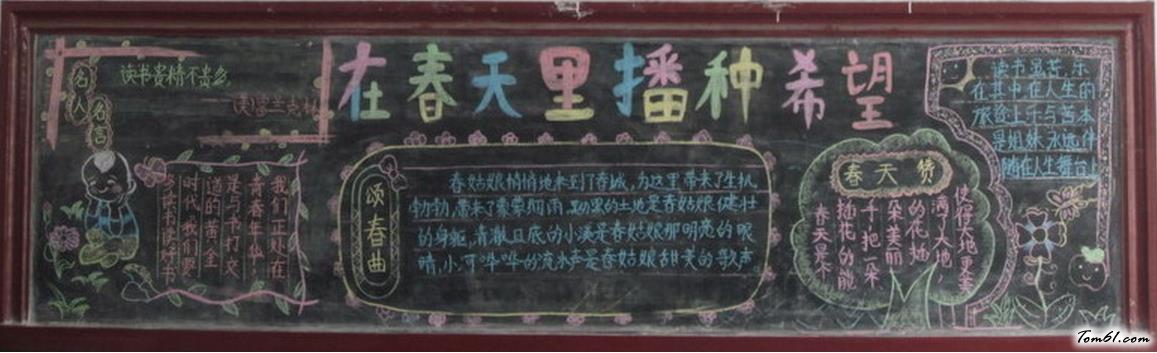 在春天里播种希望
名人
名言
读书贵精不贵多
颂春曲
春姑娘悄悄地来到了春城,为这里带来了生机
勃勃,带来了蒙蒙细雨,黝黑的土地是春姑娘健壮
的身躯,清澈且底的小溪是春姑娘那明亮的眼
睛,小河哗哗的流水声是春姑娘甜美的歌声。
我们正处在
青春年华,
是与书打交
道的黄金
时代,我们要
多读书读好书
春天赞
春天是个
插花的能
手,把一朵
朵美丽
的花插
满了大地,
使得大地更美
读书虽苦,乐
在其中在人生的
旅途上乐与苦本
是姐妹,永远伴
随在人生舞台上
Tom61.com